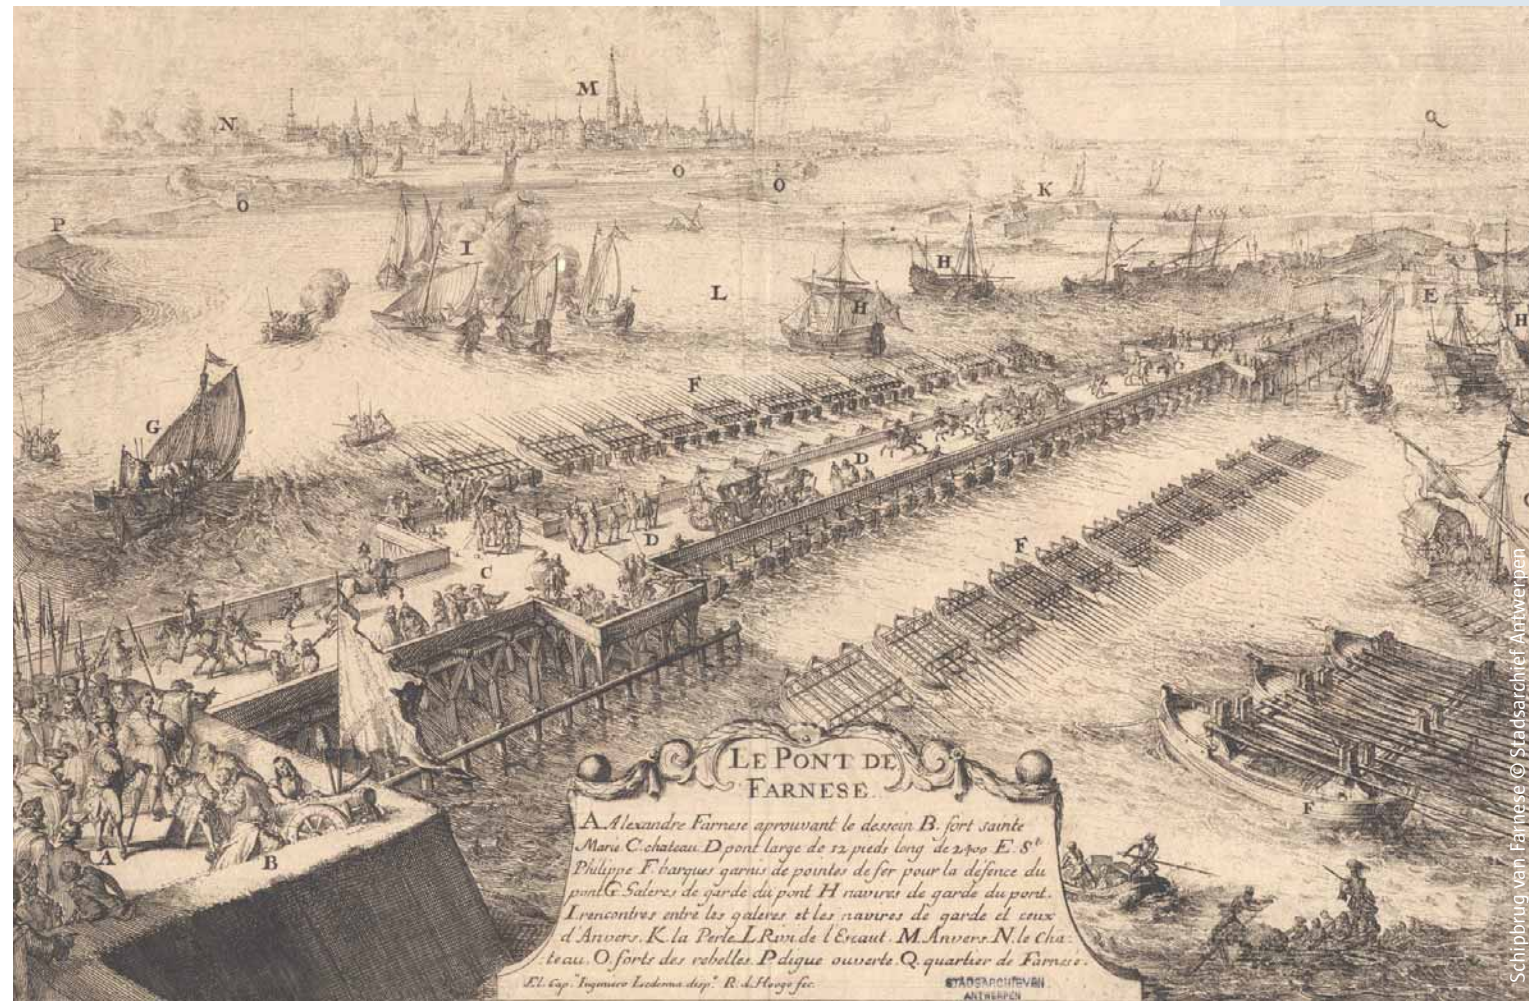 M
N
Q
O
O
K
O
P
I
H
L
H
E
H
F
G
D
D
F
C
F
A
B
LE PONT DE
FARNESE.
A. Alexandre Farnese aprouvant le dessein B. fort sainte
Marie C. chateau D pont large de 12 pieds long de 2400 E. St.
Philippe F barques garnis de pointes de fer pour la défence du
pont G. Galeres de garde du pont H navires de garde du pont.
I. rencontres entre les galeres et les navires de garde et ceux
d'Anvers. K. la Perle. L Riv. de l'Escaut. M. Anvers. N. le Cha:
:teau. O. forts des rebelles. P. digue ouverte. Q. quartier de Farnese.
El. Cap. Ingeniero Ledesma disp. R. d. Hooge fec.
STADSARCHIEVEN
ANTWERPEN
Schipbrug van Farnese © Stadsarchief Antwerpen